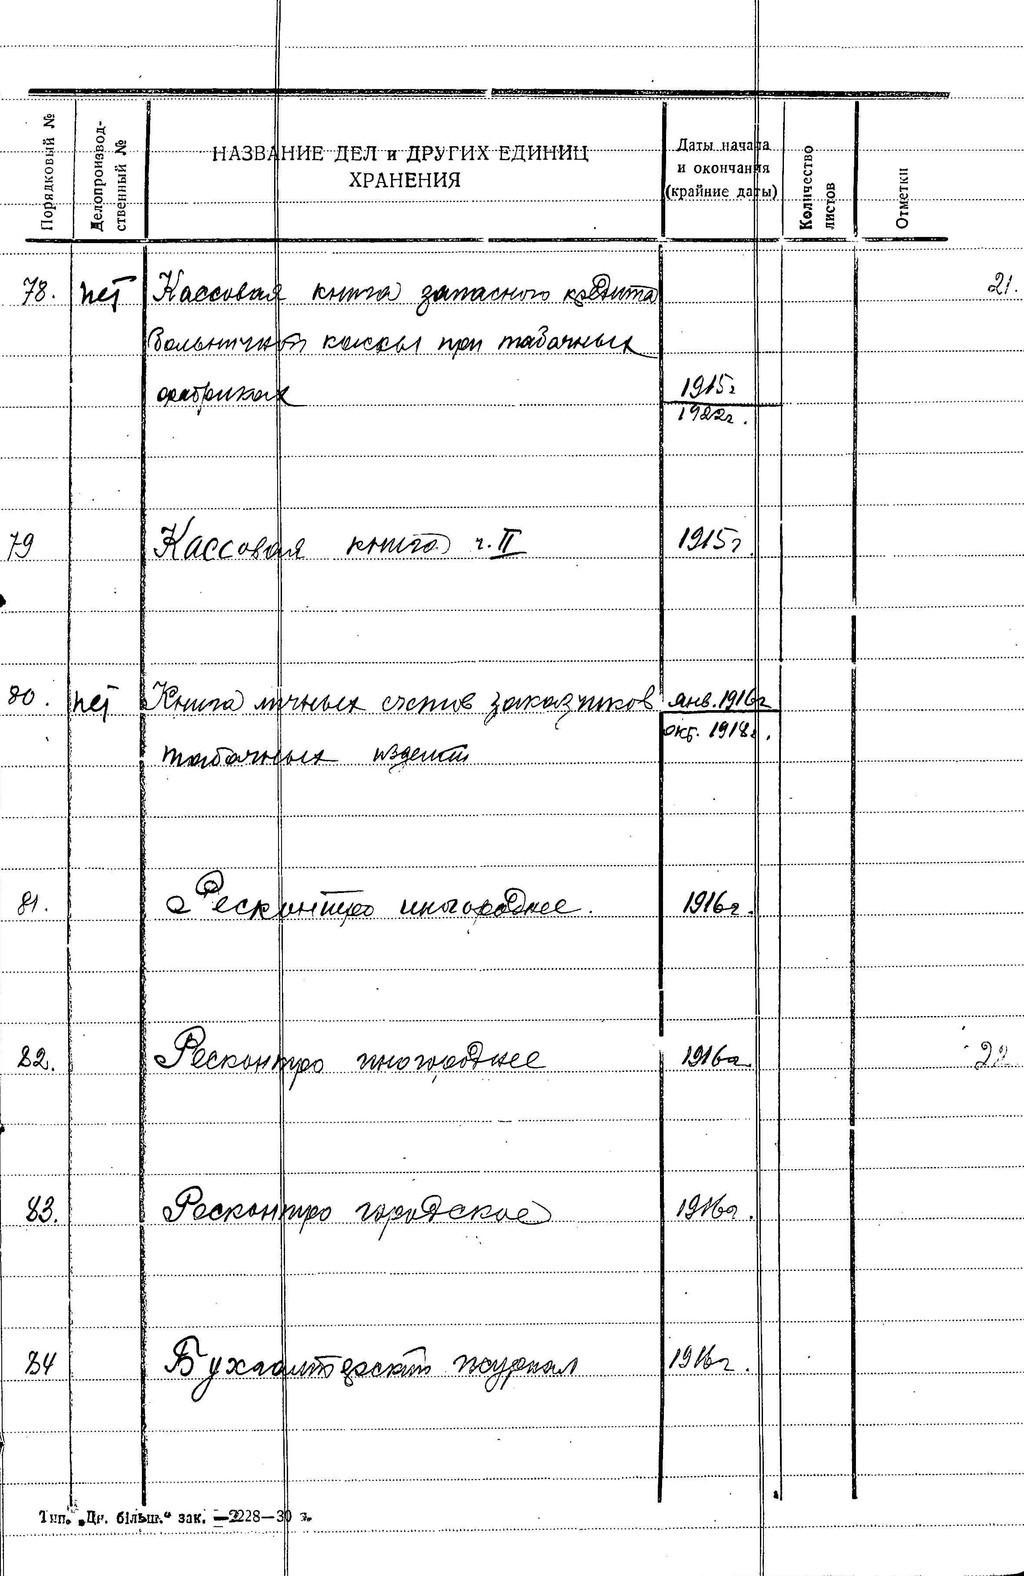 Порядковый №
Делопроизвод-
ственный №
НАЗВАНИЕ ДЕЛ и ДРУГИХ ЕДИНИЦ
ХРАНЕНИЯ
Даты начала
и окончания
(крайние даты)
Количество
листов
Отметки
78. нет Кассовая книга запасного кредита 21.
больничной кассы при табачных
фабриках 1915г
1922г.
79 Кассовая книга ч. II 1915г
80. нет Книга личных счетов заказчиков янв. 1916г
окт. 1918г.
табачных изделий
81. Рескontро иногороднее. 1916г.
82.Ресконтро иногороднее 1916г 22
83. Ресконтро городское 1916г.
84 Бухгалтерский журнал 1916г.
Тип. „Дн. більш.“ зак. —2228—30 г.